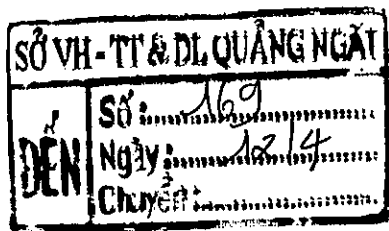 SỞ VH - TT & DL QUẢNG NGÃI
ĐẾN
Số: 169
Ngày: 12/4
Chuyển: